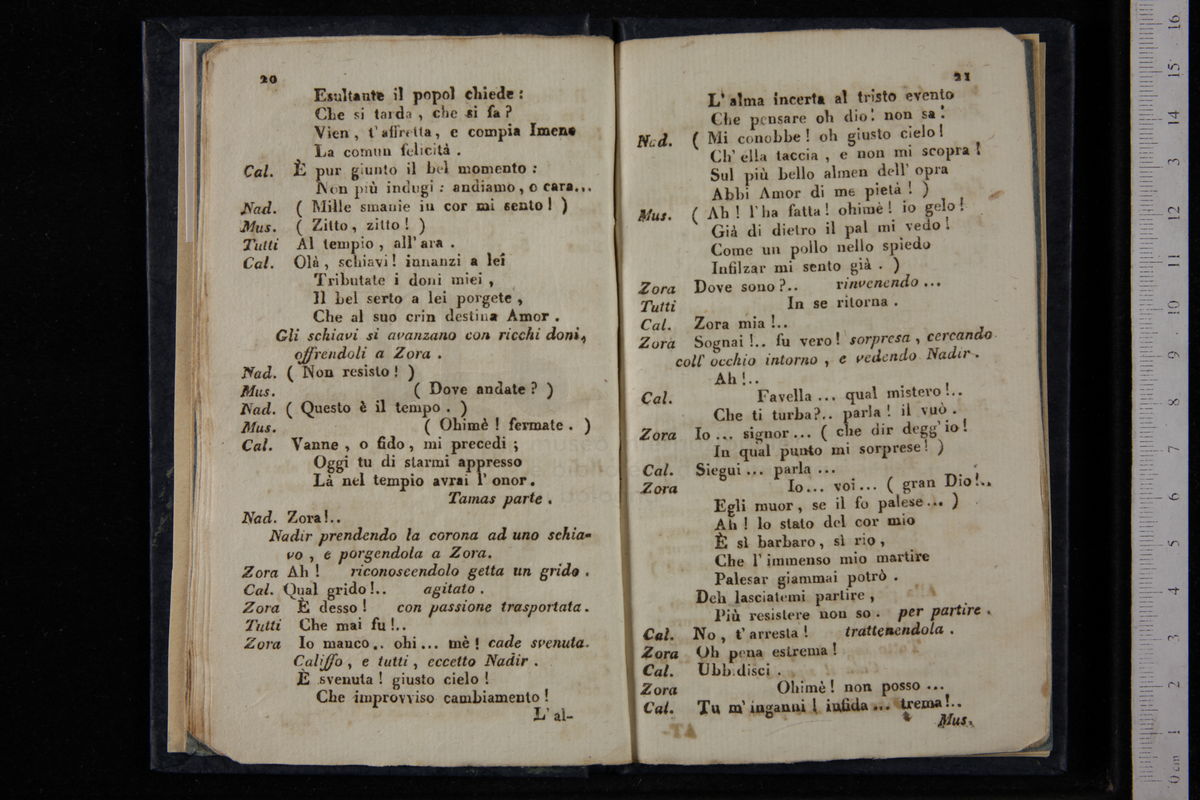 20
Esultante il popol chiede :
Che si tarda , che si fa ?
Vien , t' affretta , e compia Imene
La comun felicità .
Cal. È pur giunto il bel momento :
Non più indugi : andiamo , o cara...
Nad. ( Mille smanie in cor mi sento ! )
Mus. ( Zitto , zitto ! )
Tutti Al tempio , all' ara .
Cal. Olà , schiavi ! innanzi a lei
Tributate i doni miei ,
Il bel serto a lei porgete ,
Che al suo crin destina Amor .
Gli schiavi si avanzano con ricchi doni,
offrendoli a Zora .
Nad. ( Non resisto ! )
Mus. ( Dove andate ? )
Nad. ( Questo è il tempo . )
Mus. ( Ohimè ! fermate . )
Cal. Vanne , o fido , mi precedi ;
Oggi tu di starmi appresso
Là nel tempio avrai l' onor .
Tamas parte .
Nad. Zora !..
Nadir prendendo la corona ad uno schia-
vo , e porgendola a Zora.
Zora Ah ! riconoscendolo getta un grido .
Cal. Qual grido !.. agitato .
Zora È desso ! con passione trasportata .
Tutti Che mai fu !..
Zora Io manco .. ohi ... mè ! cade svenuta.
Califfo , e tutti , eccetto Nadir .
È svenuta ! giusto cielo !
Che improvviso cambiamento !
L' al-
21
L' alma incerta al tristo evento
Che pensare oh dio ! non sa !
Nad. ( Mi conobbe ! oh giusto cielo !
Ch' ella taccia , e non mi scopra !
Sul più bello almen dell' opra
Abbi Amor di me pietà ! )
Mus. ( Ah ! l' ha fatta ! ohimè ! io gelo !
Già di dietro il pal mi vedo !
Come un pollo nello spiedo
Infilzar mi sento già . )
Zora Dove sono ?.. rinvenendo ...
Tutti In se ritorna .
Cal. Zora mia !..
Zora Sognai !.. fu vero ! sorpresa , cercando
coll' occhio intorno , e vedendo Nadir .
Ah !..
Cal. Favella ... qual mistero !..
Che ti turba ?.. parla ! il vuò .
Zora Io ... signor ... ( che dir degg' io !
In qual punto mi sorprese ! )
Cal. Siegui ... parla ...
Zora Io ... voi ... ( gran Dio !..
Egli muor , se il fo palese ... )
Ah ! lo stato del cor mio
È sì barbaro , sì rio ,
Che l' immenso mio martire
Palesar giammai potrò .
Deh lasciatemi partire ,
Più resistere non so . per partire .
Cal. No , t' arresta ! trattenendola .
Zora Oh pena estrema !
Cal. Ubbidisci .
Zora Ohimè ! non posso ...
Cal. Tu m' inganni ! infida ... trema !..
Mus.